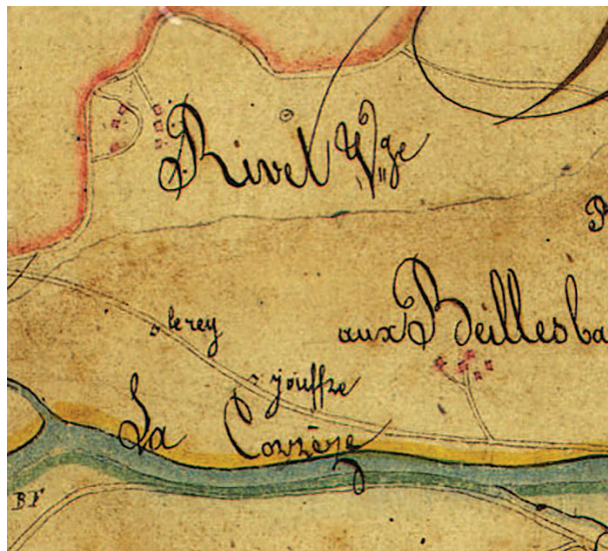 Rivel Vge
P
le rey
aux Beillesba
Jouffre
La Corrèze
B F